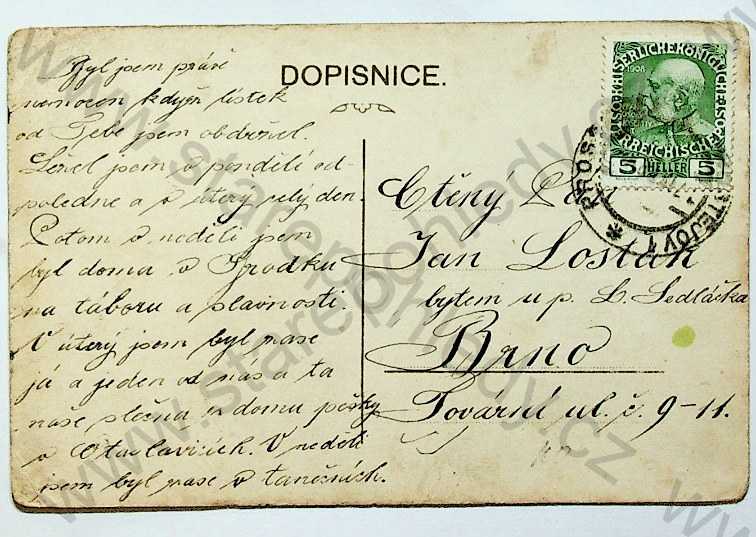 Byl jsem právě
nemocen když lístek
od Tebe jsem obdržel.
Ležel jsem v pondělí od-
poledne a v úterý celý den.
Potom v neděli jsem
byl doma v Hradku
na táboru a slavnosti.
V úterý jsem byl zase
já a jeden od nás a ta
naše slečna z domu pěšky
v Otaslavicích. V neděli
jsem byl zase v tanečních.
DOPISNICE.
KAISERLICHE KÖNIGLICHE
1908
ÖSTERREICHISCHE POST
5 HELLER 5
PROSTĚJOV 1
Ctěný Pan
Jan Lošťák
bytem u p. L. Sedláčka
Brno
Tovární ul. č. 9-11.
www.starepohledy.cz